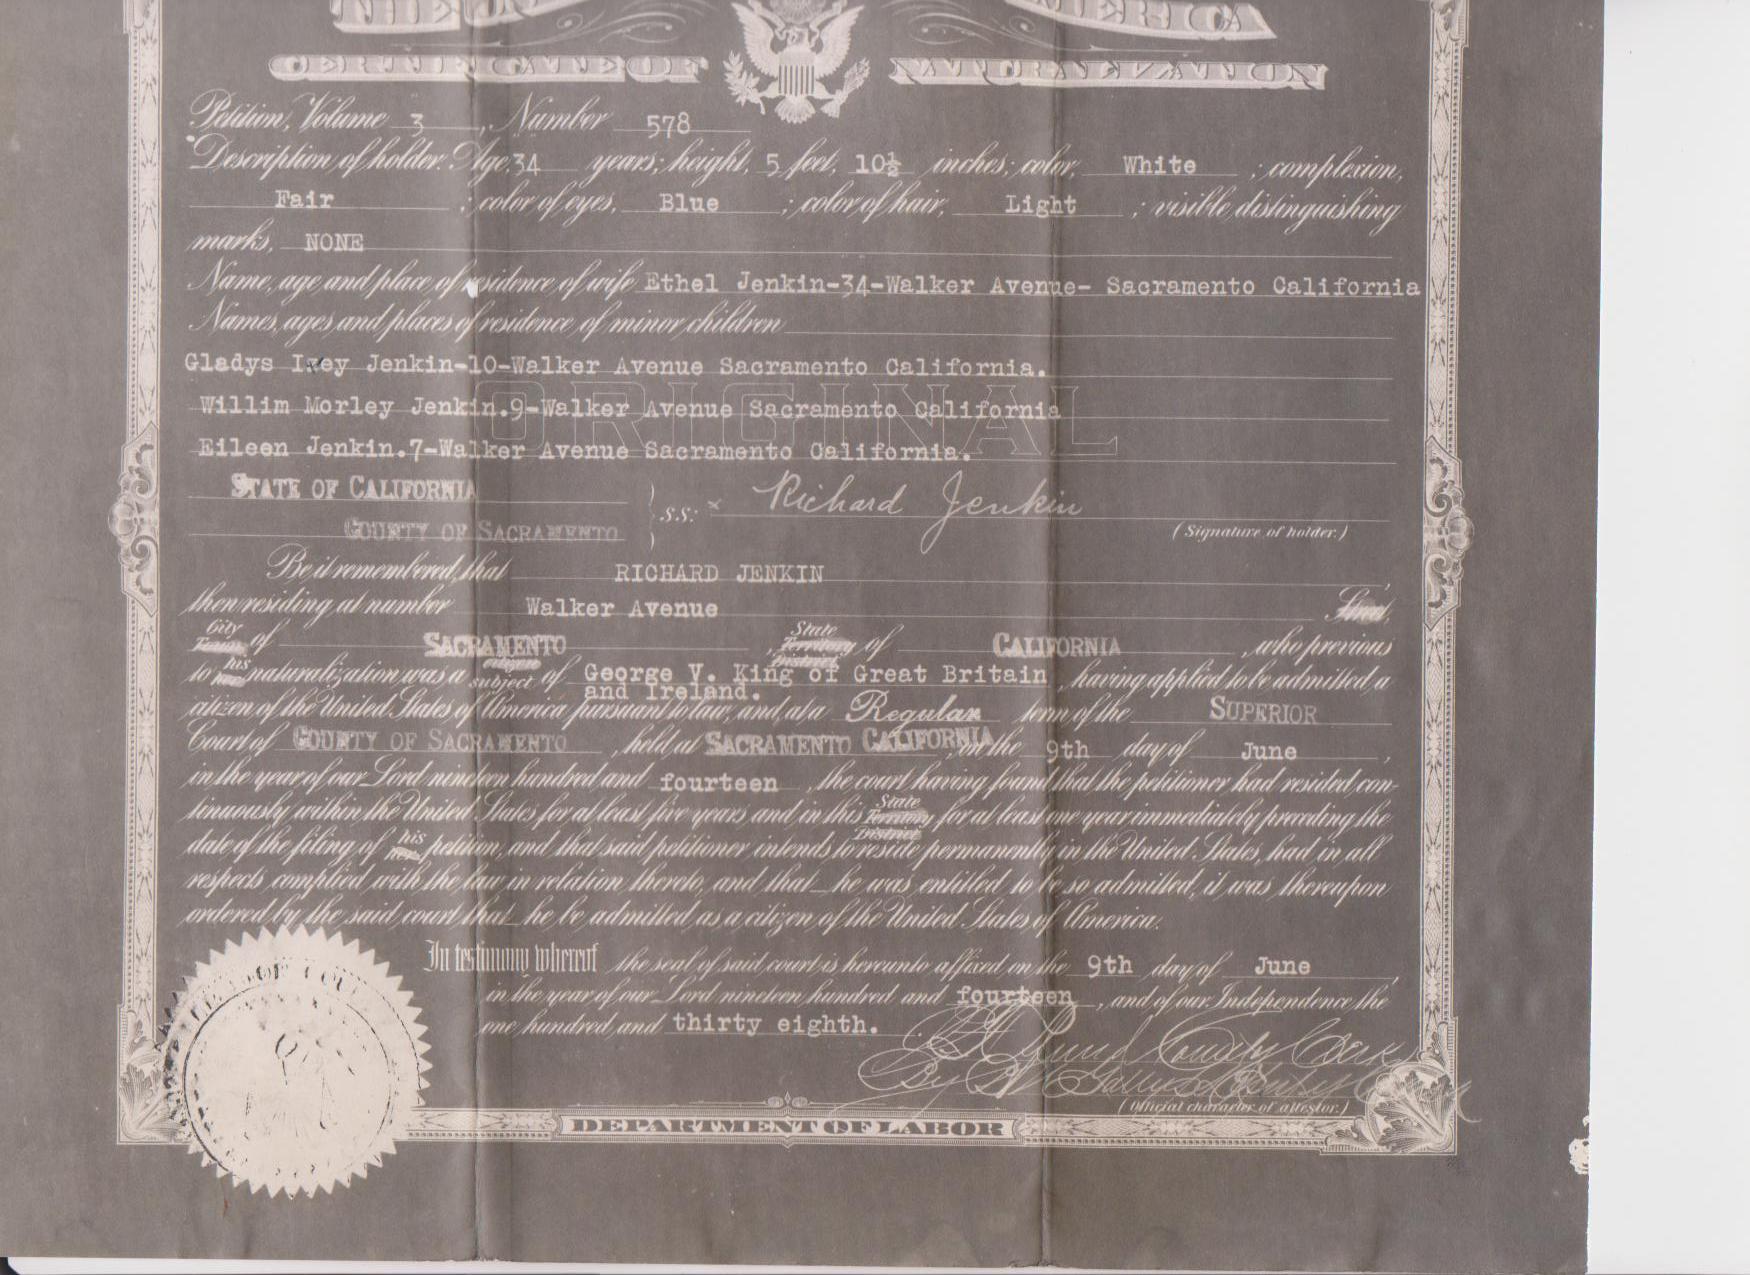 THE UNITED STATES OF AMERICA
CERTIFICATE OF NATURALIZATION
Petition, Volume 3, Number 578
Description of holder: Age, 34 years; height, 5 feet, 10½ inches; color, White; complexion,
Fair; color of eyes, Blue; color of hair, Light; visible distinguishing
marks, NONE
Name, age and place of residence of wife Ethel Jenkin-34-Walker Avenue- Sacramento California
Names, ages and places of residence of minor children
Gladys Ivey Jenkin-10-Walker Avenue Sacramento California.
Willim Morley Jenkin.9-Walker Avenue Sacramento California
ORIGINAL
Eileen Jenkin.7-Walker Avenue Sacramento California.
STATE OF CALIFORNIA
COUNTY OF SACRAMENTO } s.s: x Richard Jenkin
(Signature of holder.)
Be it remembered, that RICHARD JENKIN,
then residing at number Walker Avenue Street,
City Town of SACRAMENTO, State Territory District of CALIFORNIA, who previous
to his her naturalization was a citizen subject of George V. King of Great Britain and Ireland., having applied to be admitted a
citizen of the United States of America pursuant to law, and, at a Regular term of the SUPERIOR
Court of COUNTY OF SACRAMENTO, held at SACRAMENTO CALIFORNIA, on the 9th day of June,
in the year of our Lord nineteen hundred and fourteen, the court having found that the petitioner had resided con-
tinuously within the United States for at least five years and in this State Territory District for at least one year immediately preceding the
date of the filing of his her petition, and that said petitioner intends to reside permanently in the United States, had in all
respects complied with the law in relation thereto, and that he was entitled to be so admitted, it was thereupon
ordered by the said court that he be admitted as a citizen of the United States of America.
In testimony whereof the seal of said court is hereunto affixed on the 9th day of June,
in the year of our Lord nineteen hundred and fourteen, and of our Independence the
one hundred and thirty eighth.
County Clerk
By
(Official character of attestor.)
DEPARTMENT OF LABOR